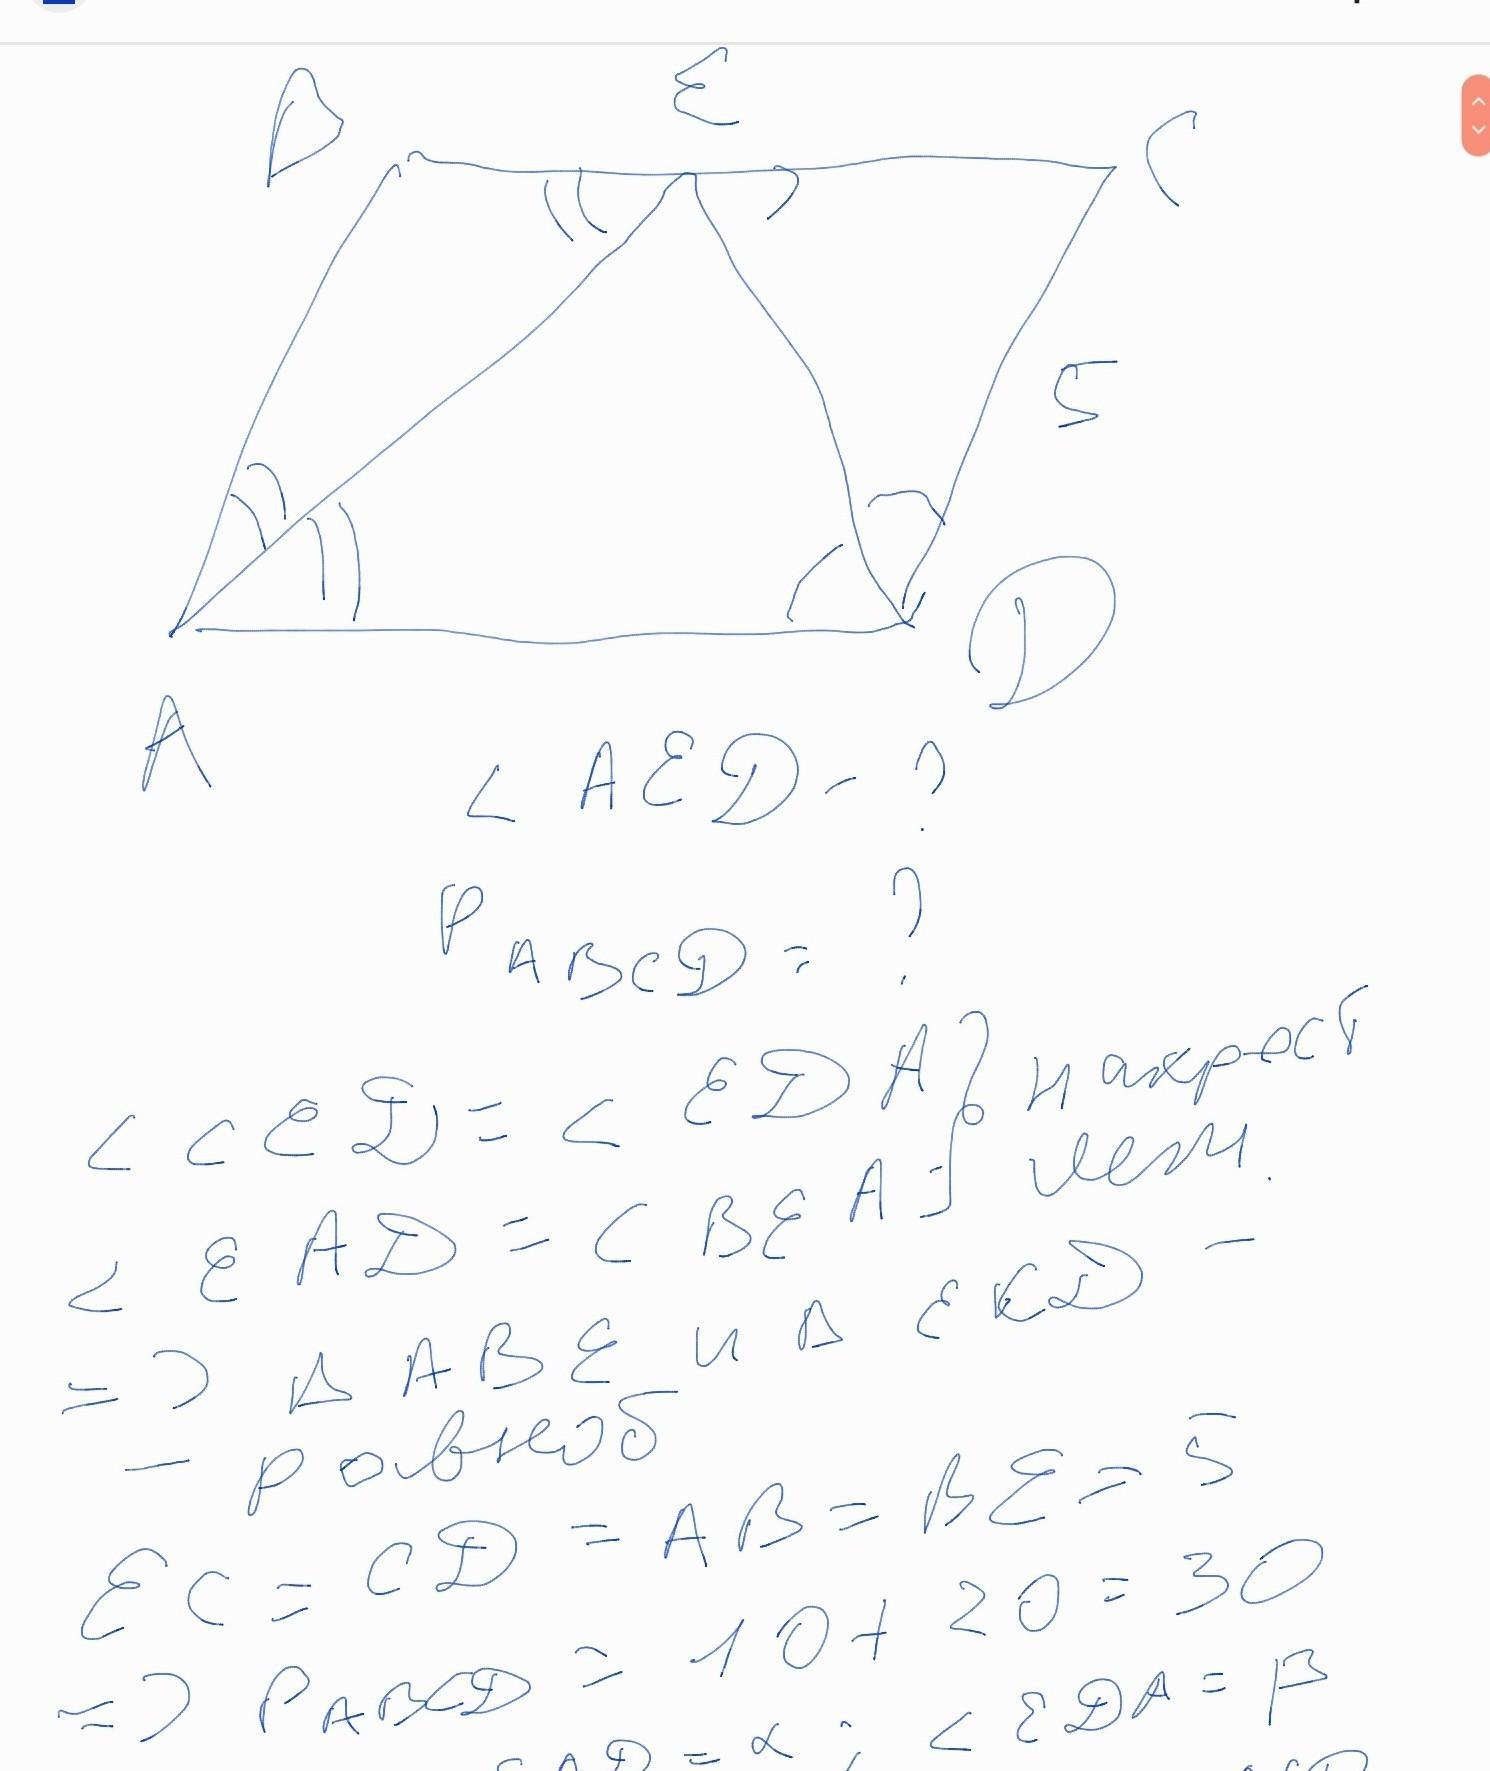 B E C
5
A D
< AED - ?
P ABCD = ?
< CED = < EDA } накрест
< EAD = < BEA } леж.
=> Δ ABE и Δ ECD -
- равноб
EC = CD = AB = BE = 5
=> P ABCD = 10 + 20 = 30
EAD = α ; < EDA = β